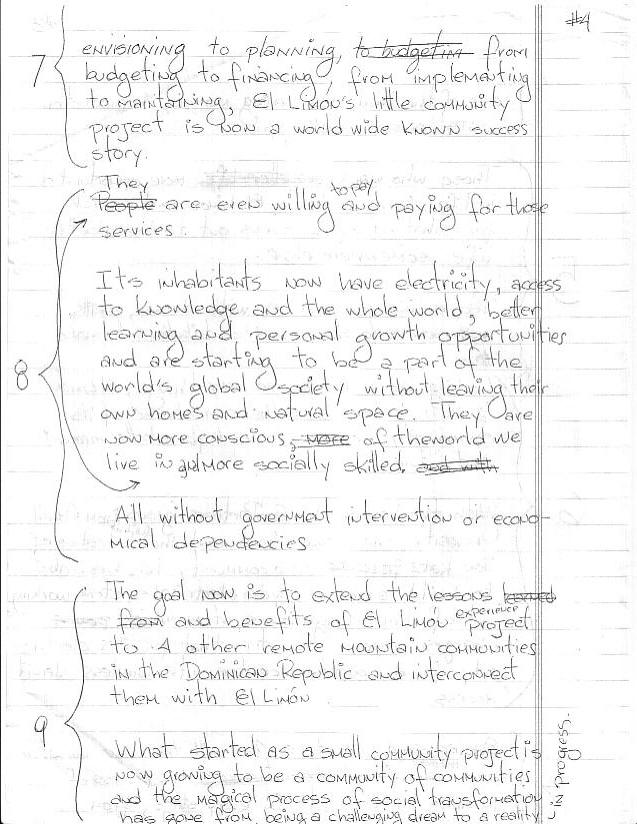 #4
7
envisioning to planning, to budgetin from
budgeting to financing, from implementing
to maintaining, El Limón's little community
project is now a world wide known success
story.
They
People are even willing to pay and paying for those
services.
8
It's inhabitants now have electricity, access
to knowledge and the whole world, better
learning and personal growth opportunities
and are starting to be a part of the
world's global society without leaving their
own homes and natural space. They are
now more conscious, more of theworld we
live in and more socially skilled, and with
All without government intervention or econo-
mical dependencies
9
The goal now is to extend the lessons learned
from and benefits of El Limón experience project
to 4 other remote mountain communities
in the Dominican Republic and interconnect
them with El Limón.
What started as a small community project is
now growing to be a community of communities
and the magical process of social transformation
has gone from being a challenging dream to a reality
in progress.